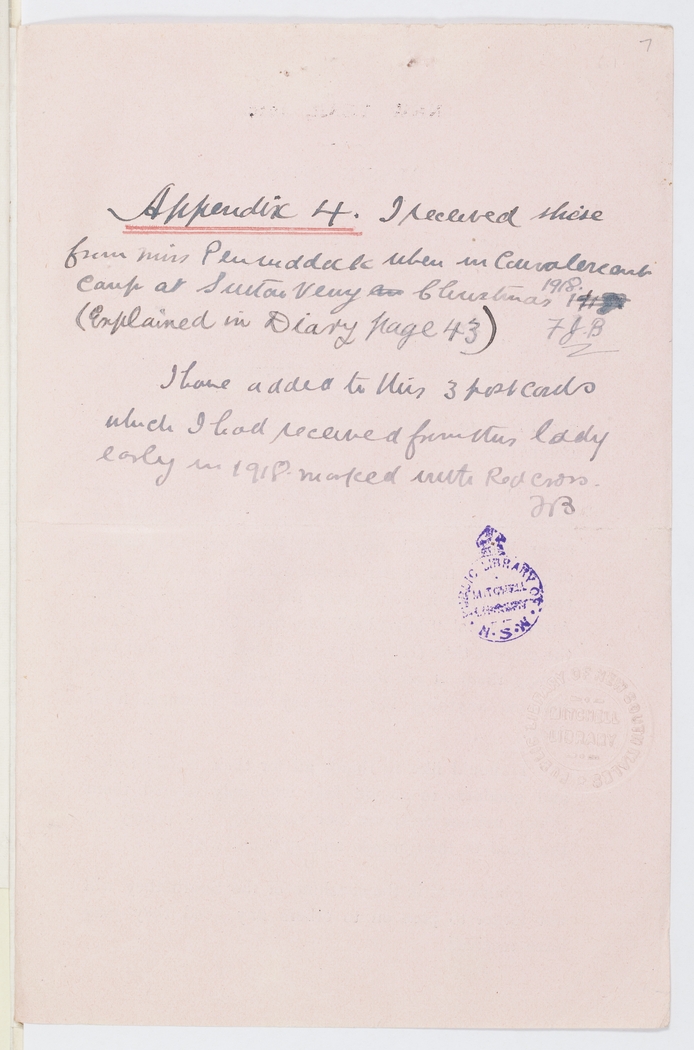 7
Appendix 4. I received these
from miss Penruddock when in Convalescent
camp at Sutton Veny Christmas 1918.
(Explained in Diary page 43) FJB
I have added to this 3 postcards
which I had received from this lady
early in 1918. marked with Red cross.
FJB
PUBLIC LIBRARY OF
MITCHELL
LIBRARY
N.S.W.